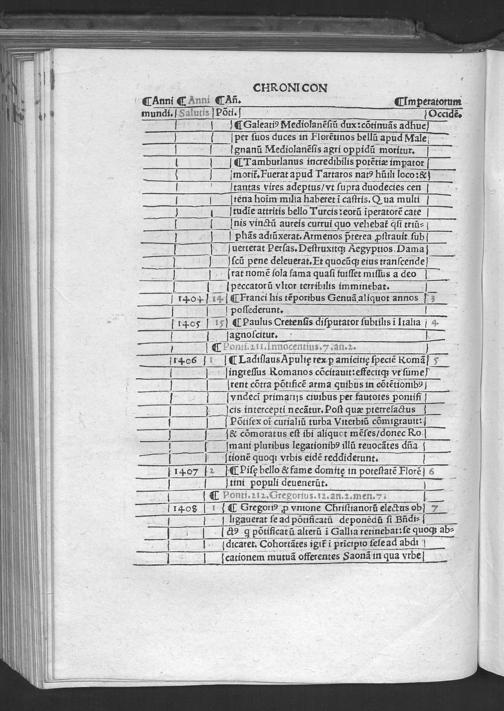 CHRONICON
¶Anni ¶ Anni ¶ Añ. ¶Imperatorum
mundi. Salutis Põti. Occidẽ.
¶ Galeatiꝰ Mediolanẽsiũ dux: cõtinuãs adhuc
per suos duces in Florẽtinos bellũ apud Male
gnanũ Mediolanẽsis agri oppidũ moritur.
¶ Tamburlanus incredibilis potẽtiæ impator
moriť. Fuerat apud Tartaros natꝰ hũili loco: &
tantas vires adeptus / vt supra duodecies cen
tena hoim milia haberet ĩ castris. Qua multi
tudie attritis bello Turcis: eorũ ĩperatorẽ cate
nis vinctũ aureis currui quo vehebať q̃si triũ⸗
phãs adiũxerat. Armenos p̃terea ꝓstrauit sub
uerterat Persas. Destruxitqꝫ Aegyptios Dama
scũ pene deleuerat. Et quocũqꝫ eius transcende
rat nomẽ sola fama quasi fuisset missus a deo
peccatorũ vltor terribilis imminebat.
1404 14 ¶ Franci his tẽporibus Genuã aliquot annos 3
possederunt.
1405 15 ¶ Paulus Cretensis disputator subtilis ĩ Italia 4
agnoscitur.
¶ Ponti. 211. Innocentius. 7. an. 2.
1406 1 ¶ Ladislaus Apulię rex p amicitię speciẽ Romã 5
ingressus Romanos cõcitauit: effecitqꝫ vt sume
rent cõtra põtificẽ arma quibus in cõtẽtionibꝰ
vndeci primarijs ciuibus per fautores pontifi
cis intercepti necãtur. Post quæ pterrefactus
Põtifex oĩ curialiũ turba Viterbiũ cõmigrauit:
& cõmoratus est ibi aliquot mẽses / donec Ro
mani pluribus legationibꝰ illũ reuocãtes dña
tionẽ quoqꝫ vrbis eidẽ reddiderunt.
1407 2 ¶ Pisę bello & fame domitę in potestatẽ Florẽ 6
tini populi deuenerũt.
¶ Ponti. 212. Gregorius. 12. an. 2. men. 7.
1408 1 ¶ Gregoriꝰ ꝓ vnione Christianorũ electus ob 7
ligauerat se ad põtificatũ deponẽdũ si Bñdi⸗
ctꝰ q põtificatũ alterũ ĩ Gallia retinebat: se quoqꝫ ab⸗
dicaret. Cohortãtes igiť ĩ prĩcipio sese ad abdi
cationem mutuã offerentes Saonã in qua vrbe